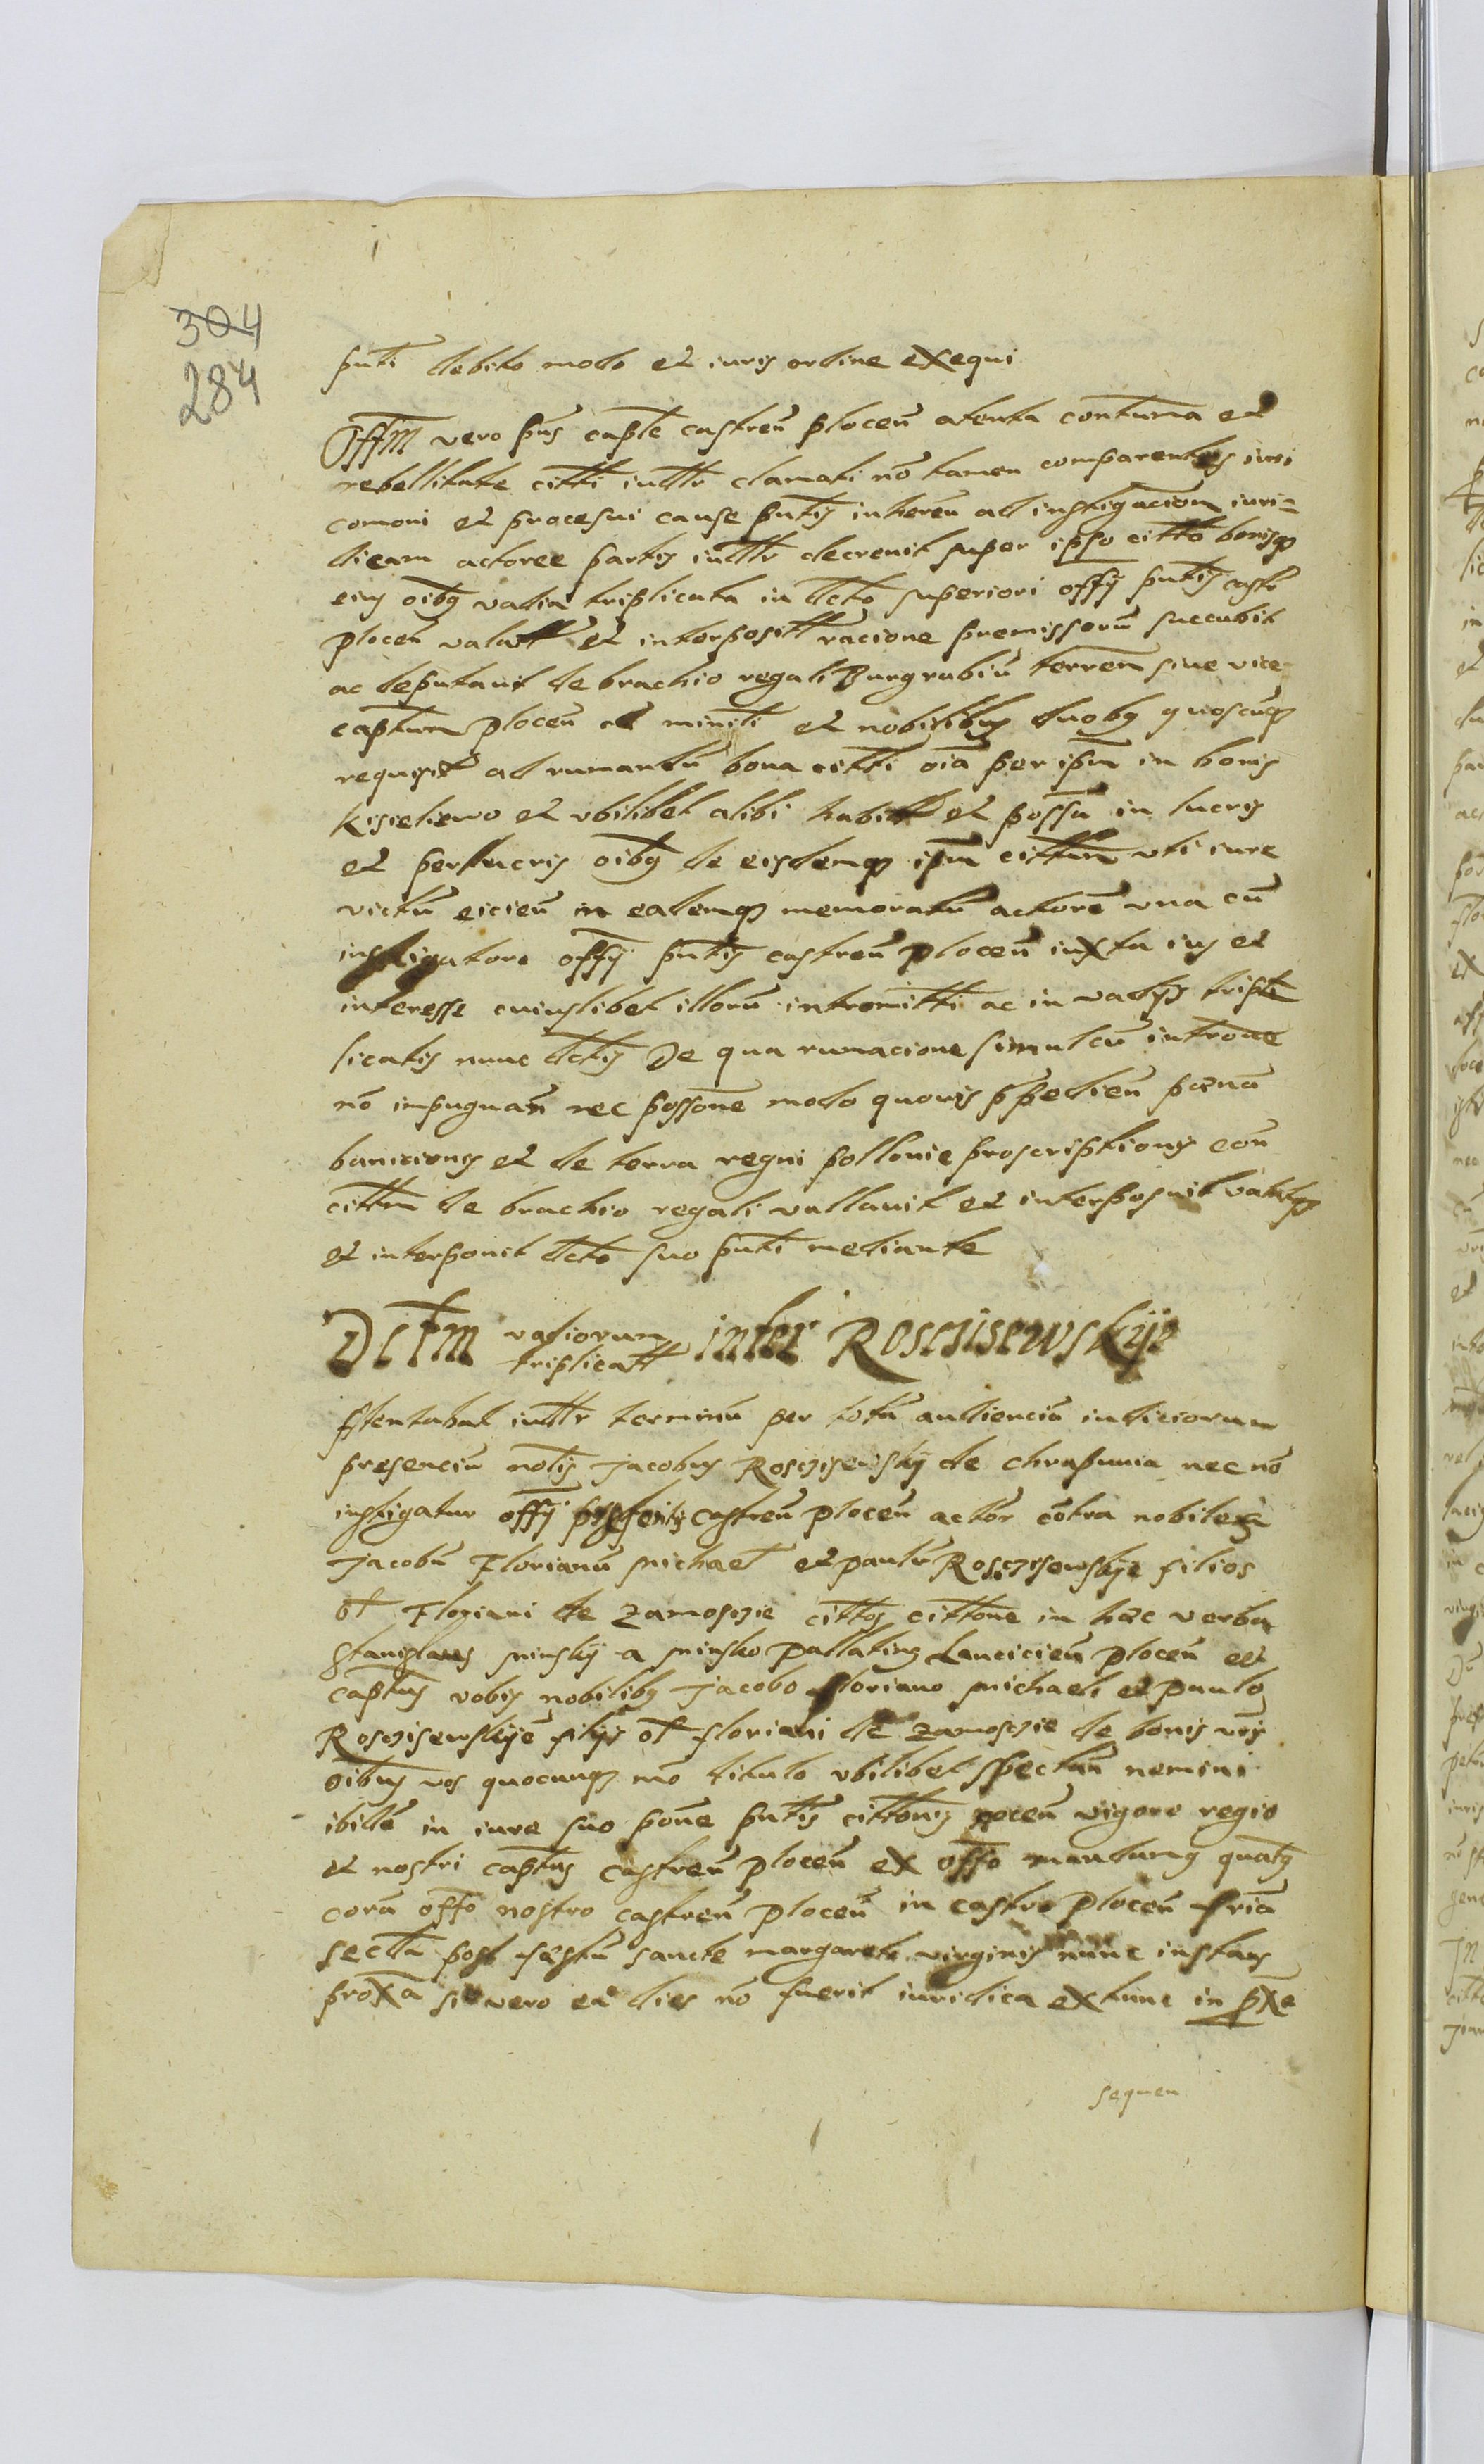 304
284
pnti debito modo et iuris ordine exequi
Offm vero pns caple castren plocen atenta contuma et
rebellitate citti iudltr clamati nõ tamen comparentis iuri
comoni et procesui cause pntis inheren ad instigacion iuri=
dicam actoree partis iudltr decrevit super ipso citto bonisqz
eius oibg vadia triplicata in dcto superiori offy pntis castr
plocen valat et interposit racione premissorũ succubit
ac deputavit de brachio regali Burgrabiũ terren sive vice
captum plocen ad minrli et nobilibus duobg quoscuqz
requisit ad rumandũ bona citti oia per ipm in bonis
Kisielewo et vbilibet alibi habit et possa in lucris
et perlucris oibg de eisdemqz ipm cittum vti iure
victũ eicien in eademqz memoratũ actorẽ vna cũ
instigatore offy pntis castren plocen iuxta ius et
interesse cuiuslibet illorũ intromitti ac in vadys triple
licatis nunc dctis De qua rumacione simulcũ introne
nõ impugnan nec possone modo quovis ppedien pœna
banicionis et de terra regni pollonie proscriptionis eon
cittm de brachio regali vallavit et interposuit valatqz
et interponit dcto suo pnti mediante
Dctm vadiorum triplicatt inter Rosczisewskije
Stentabat iudltr terminũ per totũ audienciũ iudiciorum
presenciũ nolis Jacobus Rosczisewskij de chrapunia nec nõ
instigator offy presentis castren plocen actor cõtra nobiles
Jacobũ Florianũ Michael et paulũ Rosczisewskije filios
ol Floriani de Zamosczie cittos cittone in hæc verba
Stanislaus Minskij a Minsko pallatinus Lancicien plocen et
captus vobis nobilibg Jacobo Floriano Michaeli et paulo
Rosczisewskije filys ol floriani de zamosczie de bonis vris
oibus vos quocunqz mõ titulo vbilibet spectan nemini
ibille in iure suo pone pntis cittonis pocen vigore regio
et nostri captus castren plocen ex offo mandamg quatg
corã offo nostro castren plocen in castro plocen fria
secda post festũ sancte margarete virginis nunc instans
proxa si vero ea dies nõ fuerit iuridica extunc in pxa
sequen